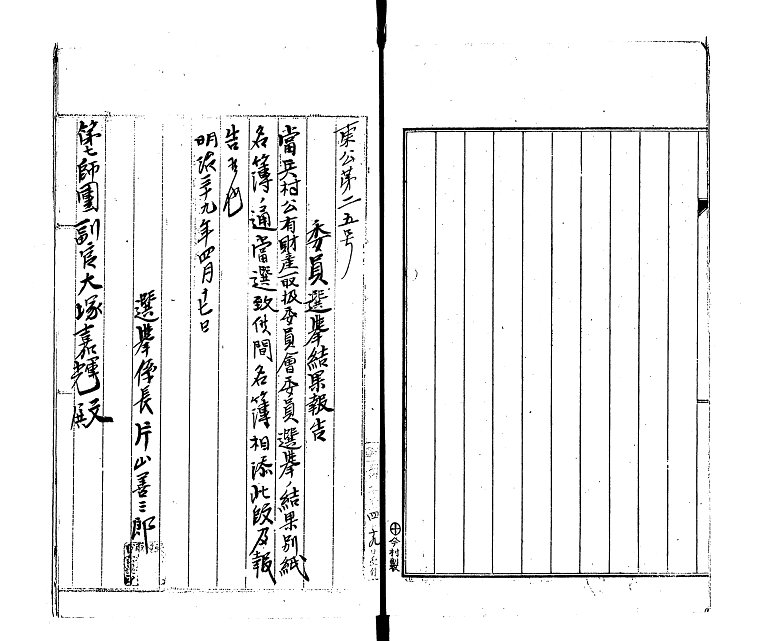 東公第二五号
委員選挙結果報告
當兵村公有財産取扱委員會委員選挙ノ結果別紙
名簿ノ通當選致候間名簿相添此段及報
告候也
明治三十九年四月十七日
選挙係長片山善三郎
第七師團副官大塚嘉耀殿
今村製